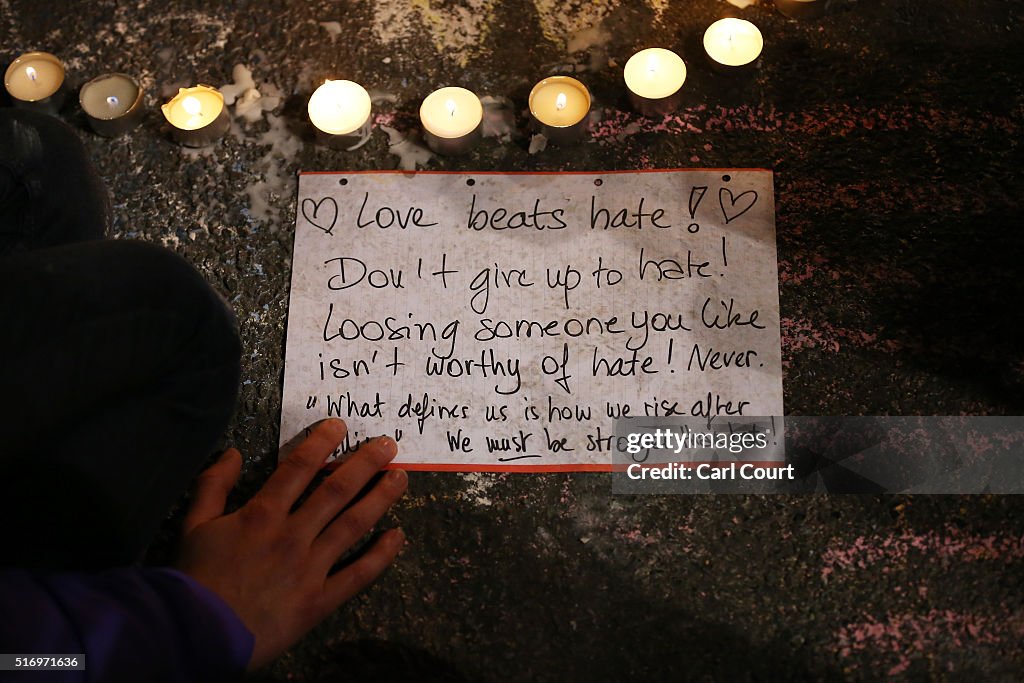 ♡ Love beats hate! ♡
Don't give up to hate!
Loosing someone you like
isn't worthy of hate! Never.
"What defines us is how we rise after
" We must be strong
gettyimages®
Carl Court
516971636